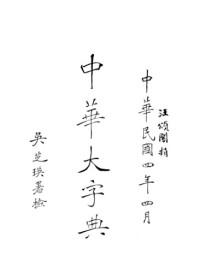 中華民國四年四月
汪頌閣
中華大字典
吳芝瑛署檢